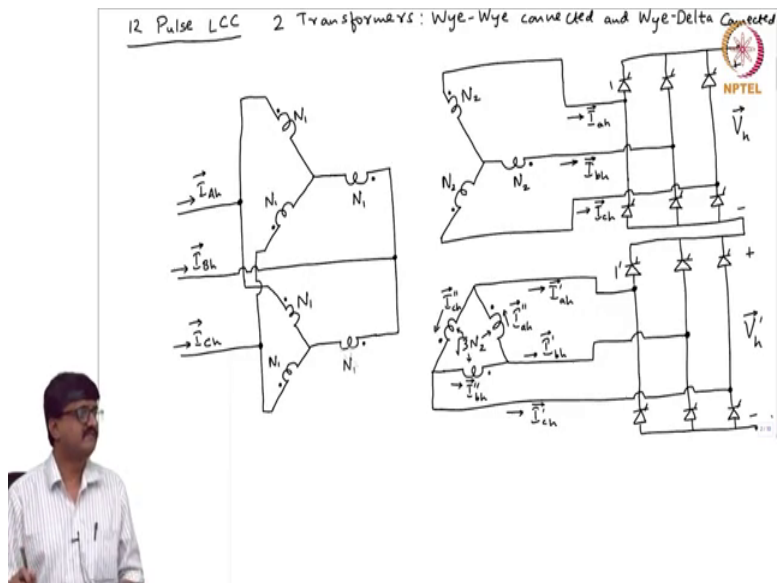 12 Pulse LCC 2 Transformers: Wye-Wye connected and Wye-Delta Connected
NPTEL
N₁
N₁
N₁
I⃗_Ah
I⃗_Bh
I⃗_Ch
N₁
N₁
N₁
N₂
N₂
N₂
I⃗_ah
I⃗_bh
I⃗_ch
1
V⃗_h
-
I⃗''_ch
I⃗''_ah
√3N₂
I⃗''_bh
I⃗'_ah
I⃗'_bh
I⃗'_ch
1'
+
V⃗'_h
-